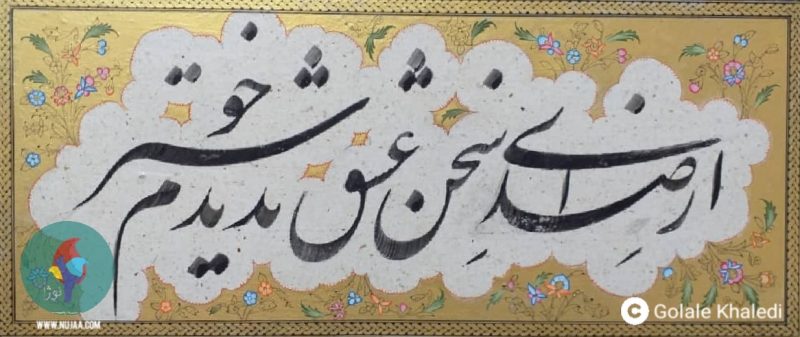 از صدای سخن عشق ندیدم خوشتر
نوژا
WWW.NUJAA.COM
C Golale Khaledi